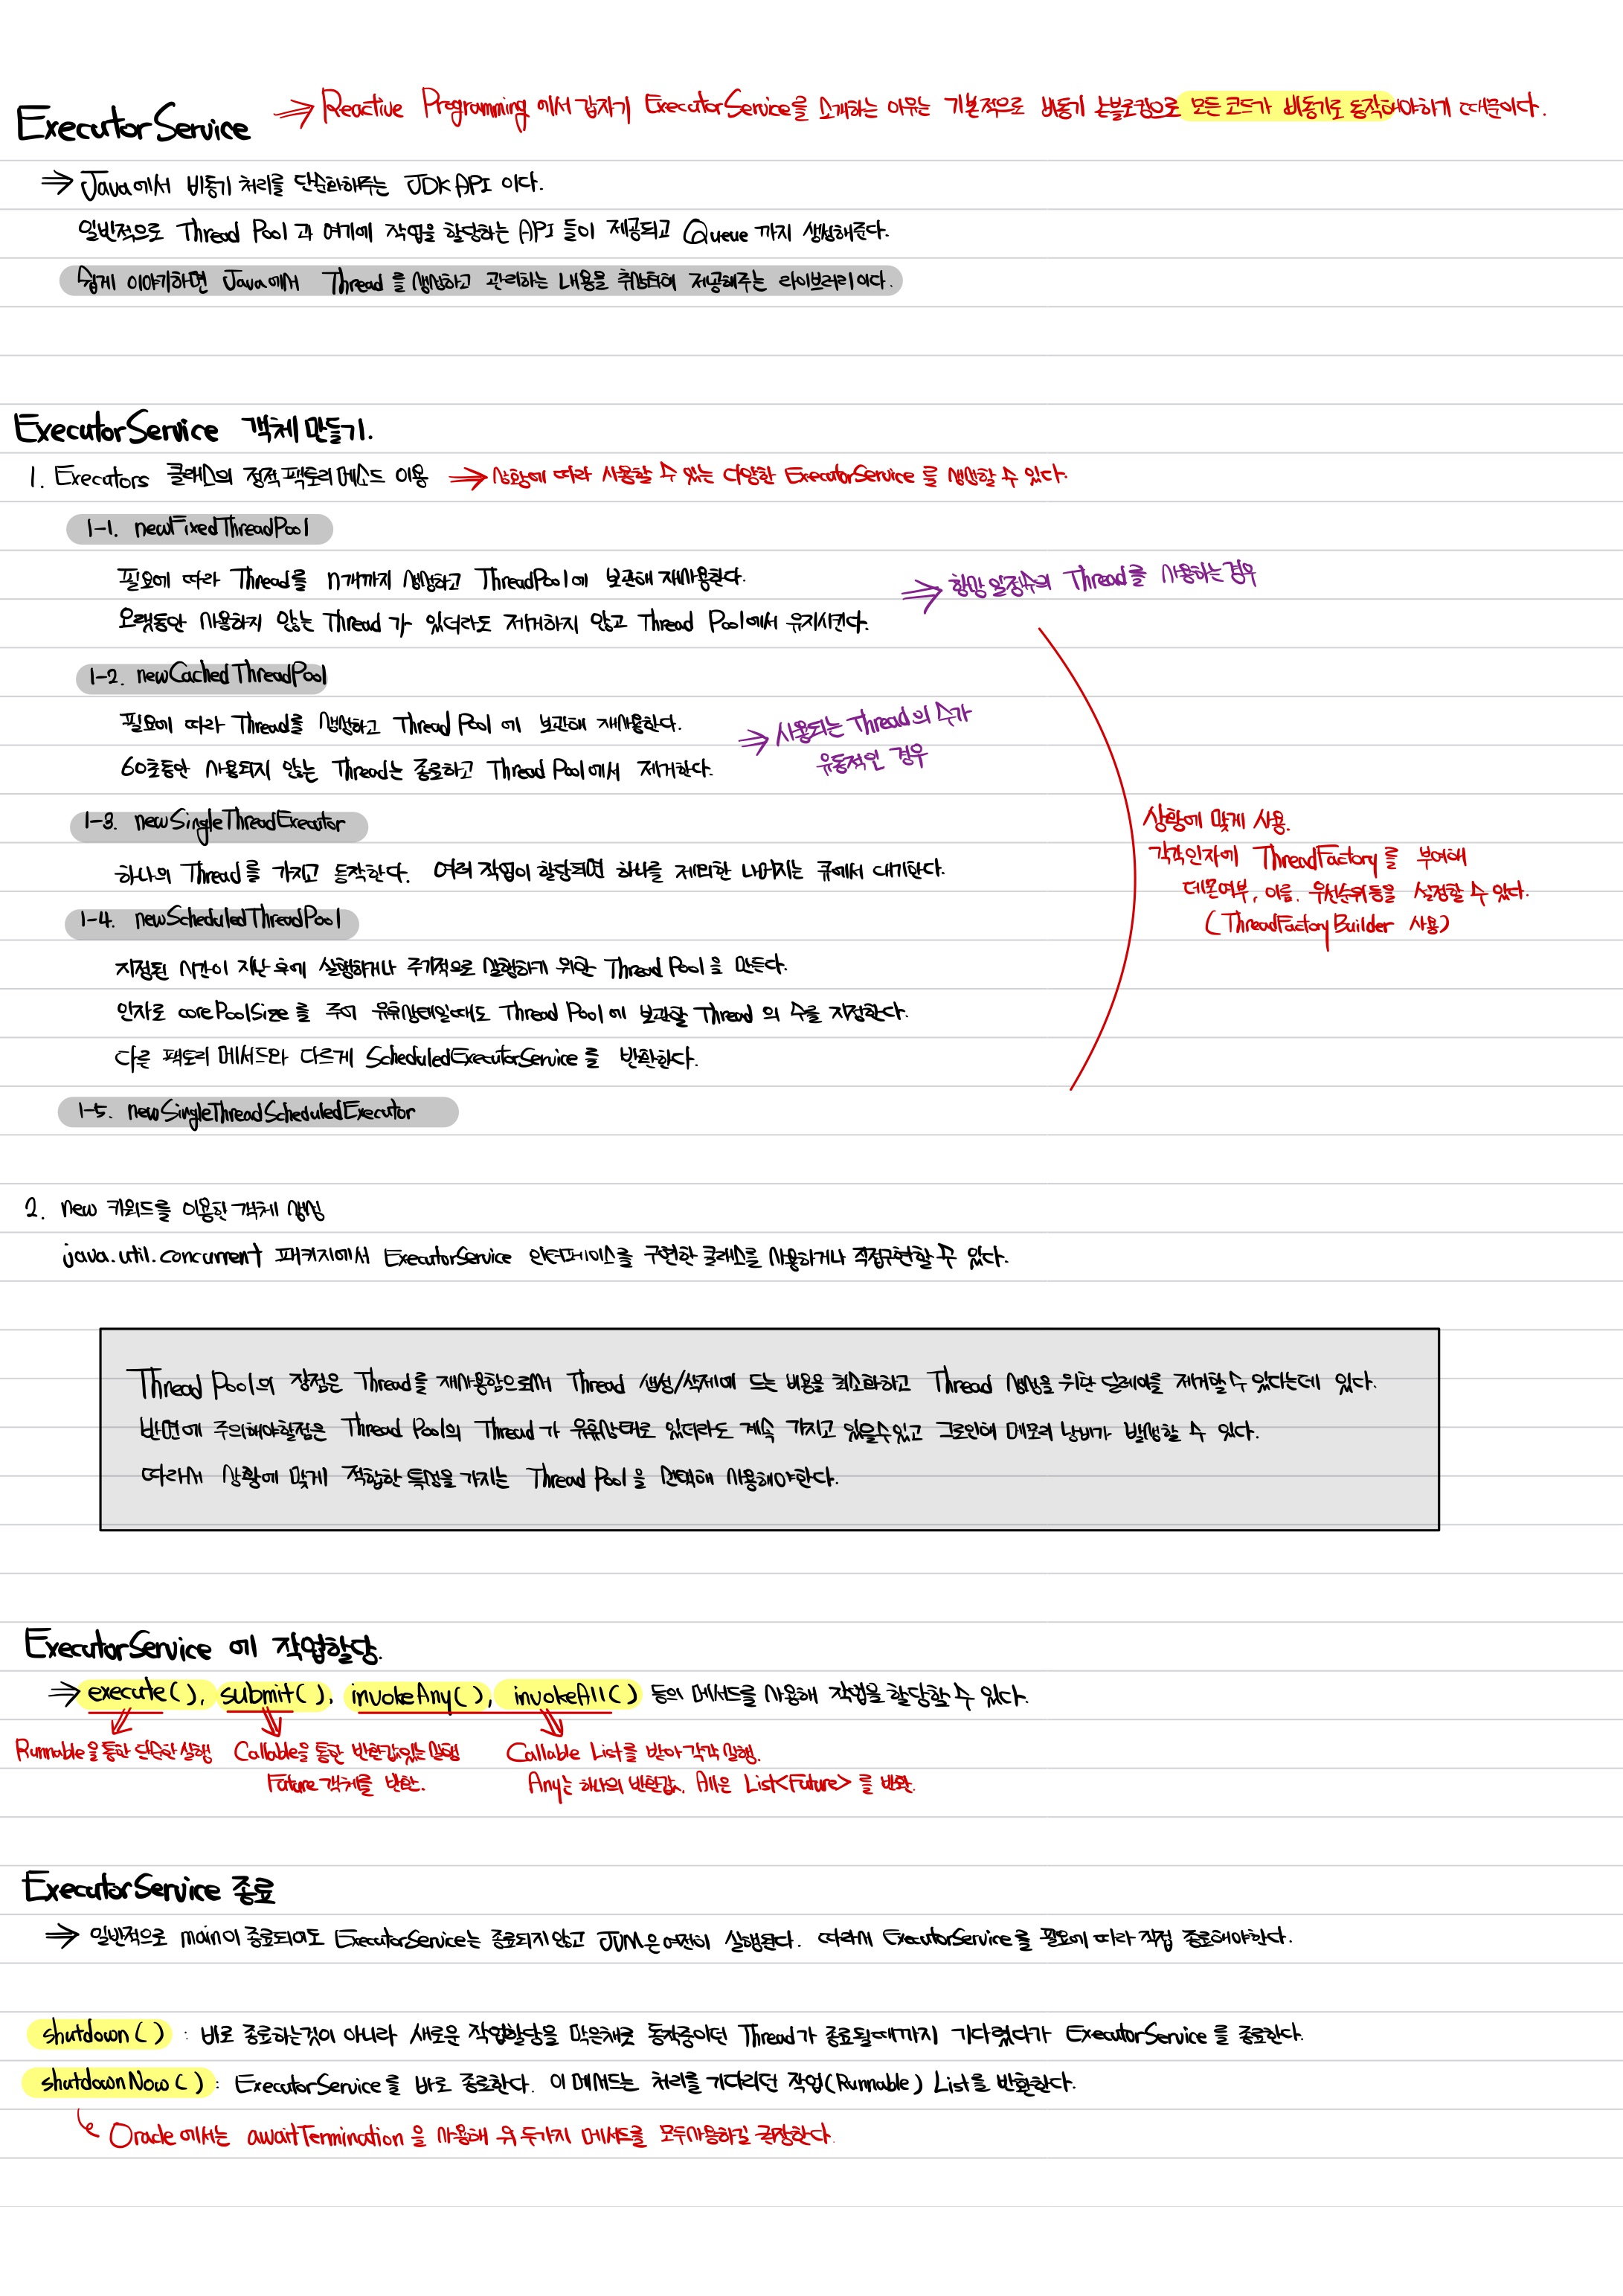 ExecutorService ⇒ Reactive Programming 에서 갑자기 ExecutorService를 소개하는 이유는 기본적으로 비동기 논블로킹으로 모든 코드가 비동기로 동작해야하기 때문이다.
⇒ Java에서 비동기 처리를 단순화해주는 JDK API 이다.
일반적으로 Thread Pool 과 여기에 작업을 할당하는 API 들이 제공되고 Queue 까지 생성해준다.
쉽게 이야기하면 Java에서 Thread를 생성하고 관리하는 내용을 추상화해 제공해주는 라이브러리이다.
ExecutorService 객체 만들기.
1. Executors 클래스의 정적 팩토리 메소드 이용 ⇒ 상황에 따라 사용할 수 있는 다양한 ExecutorService 를 생성할 수 있다.
1-1. newFixedThreadPool
필요에 따라 Thread를 n개까지 생성하고 ThreadPool에 보관해 재사용한다.
오랫동안 사용하지 않는 Thread 가 있더라도 제거하지 않고 Thread Pool에서 유지시킨다.
⇒ 항상 일정수의 Thread를 사용하는 경우
1-2. newCachedThreadPool
필요에 따라 Thread를 생성하고 Thread Pool 에 보관해 재사용한다.
60초동안 사용되지 않는 Thread는 종료하고 Thread Pool에서 제거한다.
⇒ 사용되는 Thread의 수가
유동적인 경우
1-3. newSingleThreadExecutor
하나의 Thread를 가지고 동작한다. 여러 작업이 할당되면 하나를 제외한 나머지는 큐에서 대기한다.
1-4. newScheduledThreadPool
지정된 시간이 지난 후에 실행하거나 주기적으로 실행하기 위한 Thread Pool을 만든다.
인자로 corePoolSize를 주어 유휴상태일때도 Thread Pool에 보관할 Thread 의 수를 지정한다.
다른 팩토리 메서드와 다르게 ScheduledExecutorService를 반환한다.
1-5. newSingleThreadScheduledExecutor
상황에 맞게 사용.
각각인자에 ThreadFactory를 부여해
데몬여부, 이름, 우선순위등을 설정할 수 있다.
(ThreadFactoryBuilder 사용)
2. new 키워드를 이용한 객체 생성
java.util.concurrent 패키지에서 ExecutorService 인터페이스를 구현한 클래스를 사용하거나 직접구현할 수 있다.
Thread Pool의 장점은 Thread를 재사용함으로써 Thread 생성/삭제에 드는 비용을 최소화하고 Thread 생성을 위한 딜레이를 제거할 수 있다는데 있다.
반면에 주의해야할점은 Thread Pool의 Thread 가 유휴상태로 있더라도 계속 가지고 있을수있고 그로인해 메모리 낭비가 발생할 수 있다.
따라서 상황에 맞게 적합한 특성을 가지는 Thread Pool을 선택해 사용해야한다.
ExecutorService 에 작업할당.
⇒ execute(), submit(), invokeAny(), invokeAll() 등의 메서드를 사용해 작업을 할당할 수 있다.
Runnable을 통한 단순한 실행
Callable을 통한 반환값있는 실행
Future 객체를 반환.
Callable List를 받아 각각 실행.
Any는 하나의 반환값, All은 List<Future> 를 반환.
ExecutorService 종료
⇒ 일반적으로 main이 종료되어도 ExecutorService는 종료되지 않고 JVM은 여전히 실행된다. 따라서 ExecutorService를 필요에 따라 직접 종료해야한다.
shutdown() : 바로 종료하는것이 아니라 새로운 작업할당을 막은채로 동작중이던 Thread가 종료될때까지 기다렸다가 ExecutorService 를 종료한다.
shutdownNow() : ExecutorService를 바로 종료한다. 이 메서드는 처리를 기다리던 작업(Runnable) List를 반환한다.
Oracle 에서는 awaitTermination 을 사용해 위 두가지 메서드를 모두사용하길 권장한다.